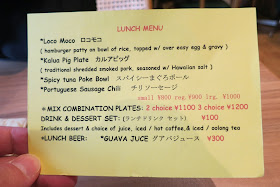 LUNCH MENU
*Loco Moco ロコモコ
( hamburger patty on bowl of rice, topped w/ over easy egg & gravy )
*Kalua Pig Plate カルアピッグ
( traditional shredded smoked pork, seasoned w/ Hawaiian salt )
*Spicy tuna Poke Bowl スパイシーまぐろボール
*Portuguese Sausage Chili チリソーセージ
small ¥800 reg ¥900 lrg. ¥1000
*MIX COMBINATION PLATES: 2 choice ¥1100 3 choice ¥1200
DRINK & DESSERT SET: (ランチドリンク セット) ¥100
Includes dessert & choice of juice, iced / hot coffee,& iced / oolong tea
*LUNCH BEER: *GUAVA JUCE グアバジュース ¥300